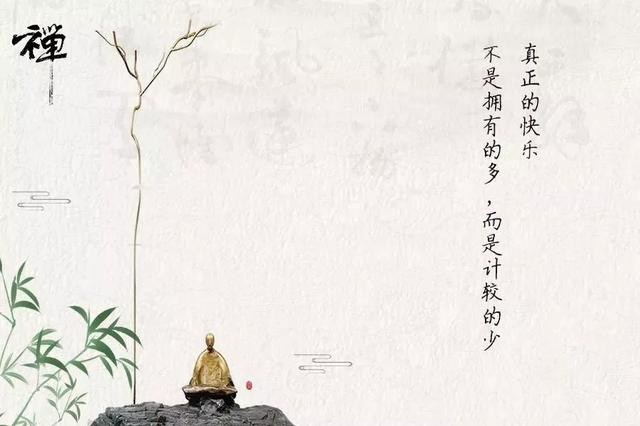 禅
真正的快乐
不是拥有的多，而是计较的少